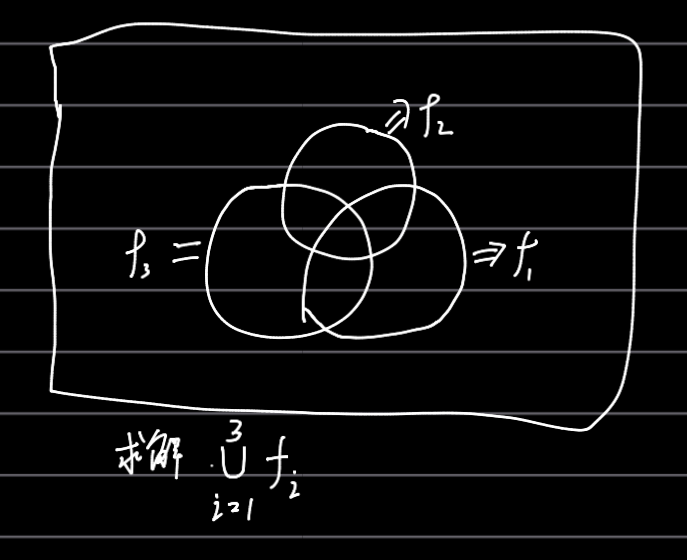 ⇒ f₂
f₃ =
⇒ f₁
求解 ⋃ᵢ₌₁³ fᵢ